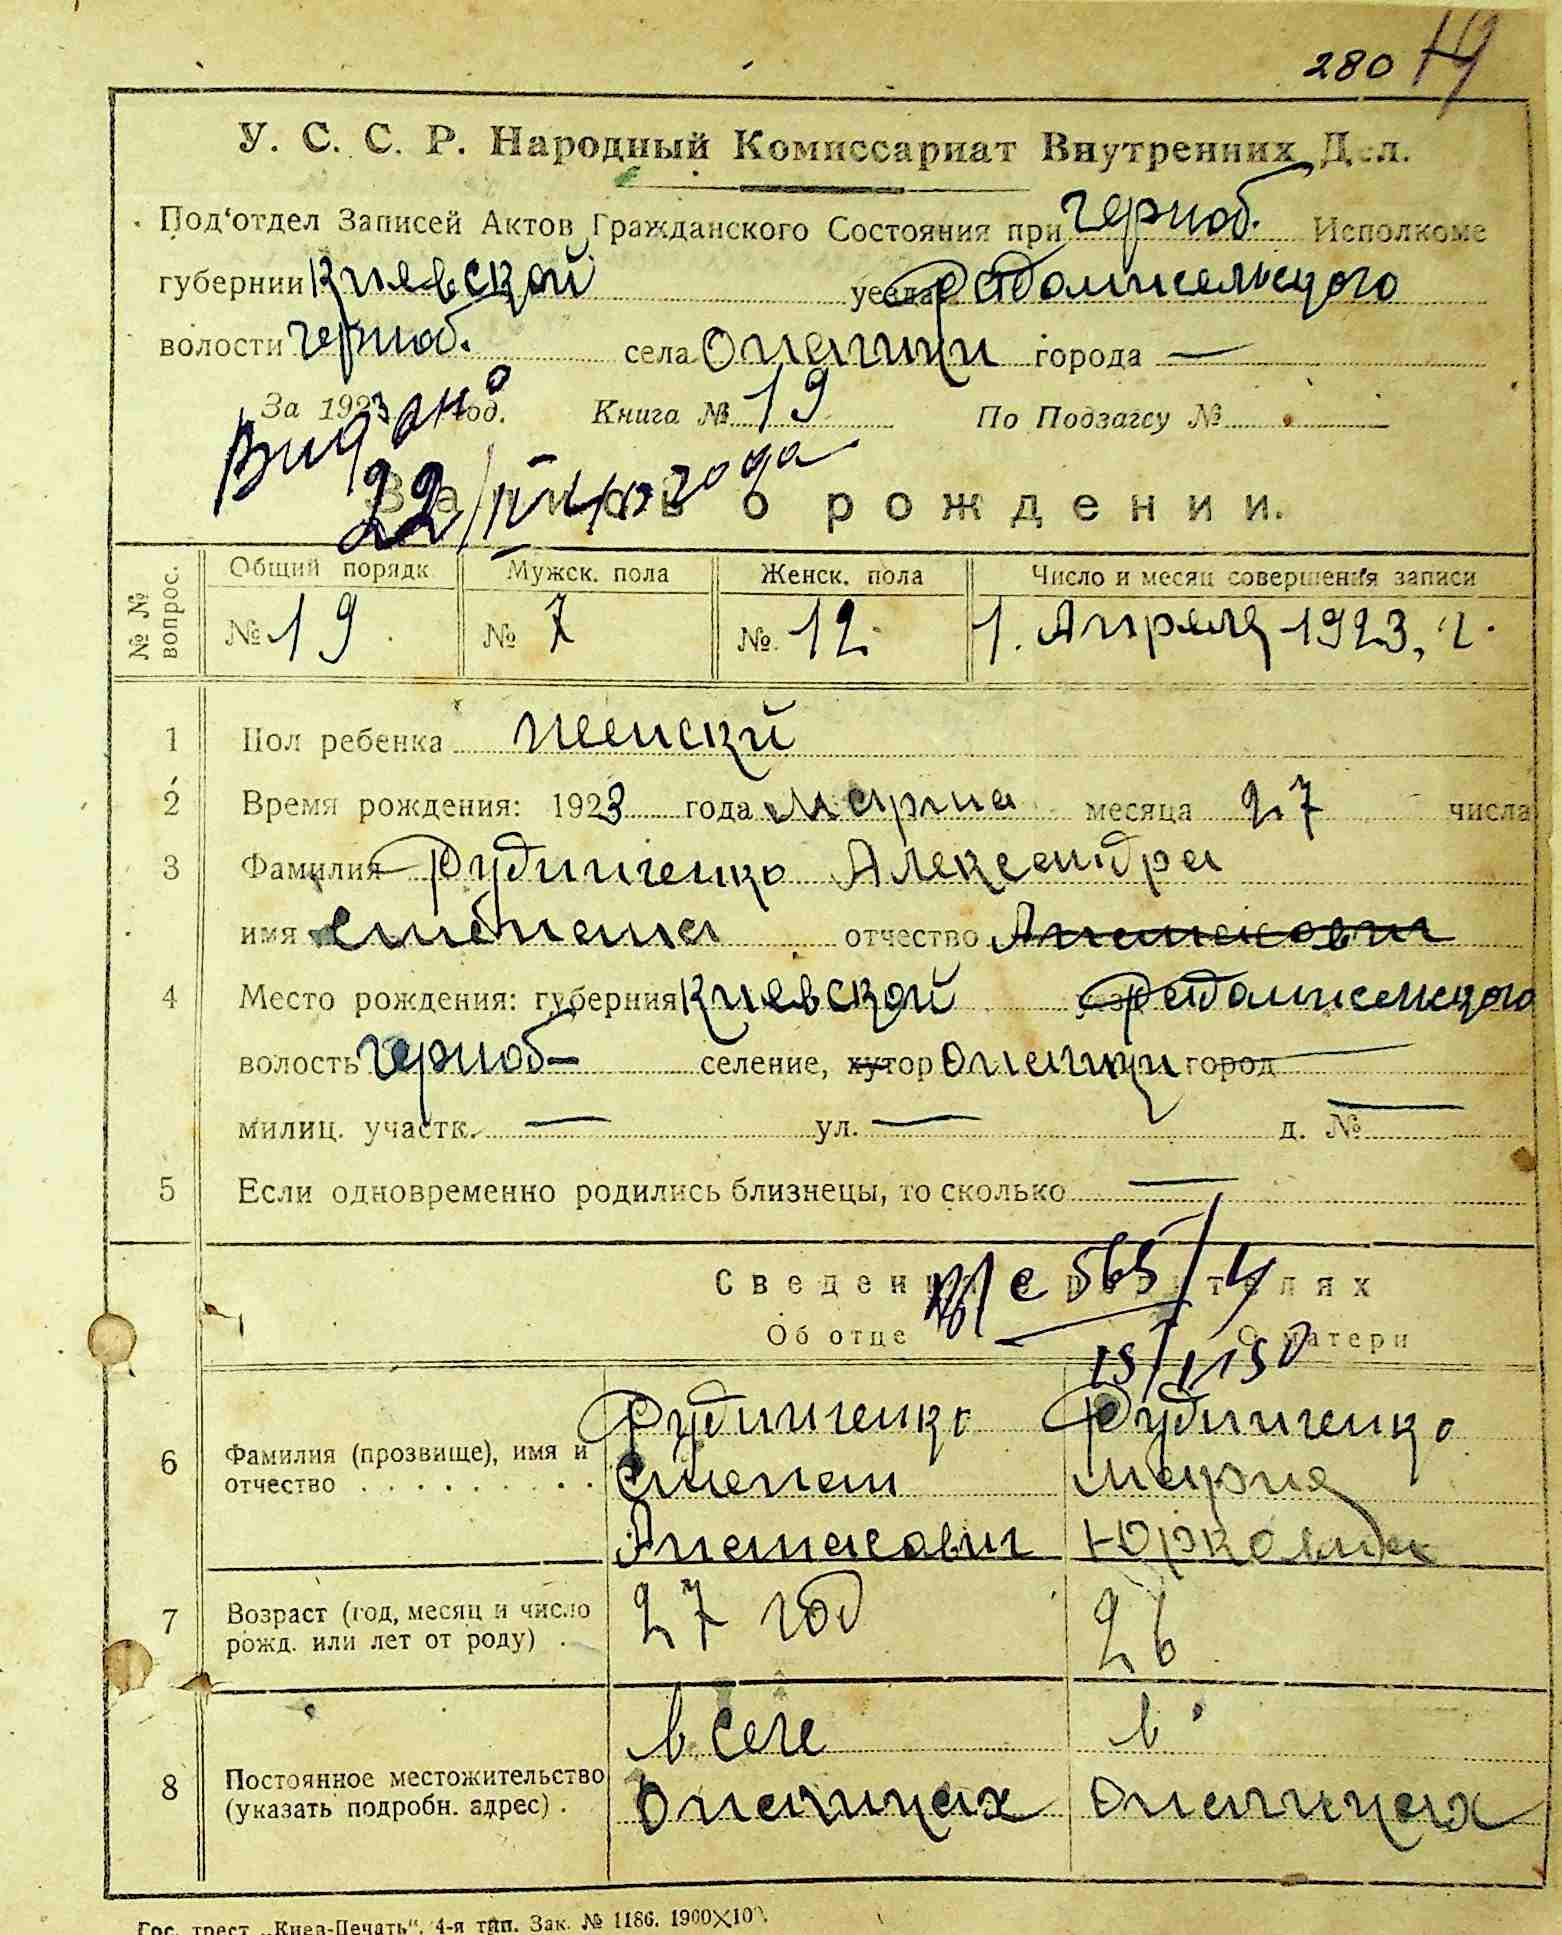 280 19
У. С. С. Р. Народный Комиссариат Внутренних Дел.
Под'отдел Записей Актов Гражданского Состояния при Черноб. Исполкоме
губернии Киевской уезда Радомисельского
волости Черноб. села Опачичи города —
За 1923 год. Книга № 19 По Подзагсу №
Видано
22/IV
года
Запись о рождении.
№ № вопрос. Общий порядк Мужск. пола Женск. пола Число и месяц совершения записи
№ 19 № 7 № 12 1. Апреля 1923, г.
1 Пол ребенка женский
2 Время рождения: 1923 года марта месяца 27 числа
3 Фамилия Рудниченко Александра
имя Степана отчество Апанасович
4 Место рождения: губерния Киевской Радомисельского
волость Черноб— селение, хутор Опачичи город —
милиц. участк. — ул. — д. № —
5 Если одновременно родились близнецы, то сколько —
Сведения о родителях
565/4
Об отце О матери
6 Фамилия (прозвище), имя и отчество Рудниченко Рудниченко
Степан Мария
Апанасович
7 Возраст (год, месяц и число рожд. или лет от роду) . 27 год 26
8 Постоянное местожительство (указать подробн. адрес) . в селе в
Опачичах Опачичах
Гос. трест „Киев-Печать“. 4-я тип. Зак. № 1186. 1900×10